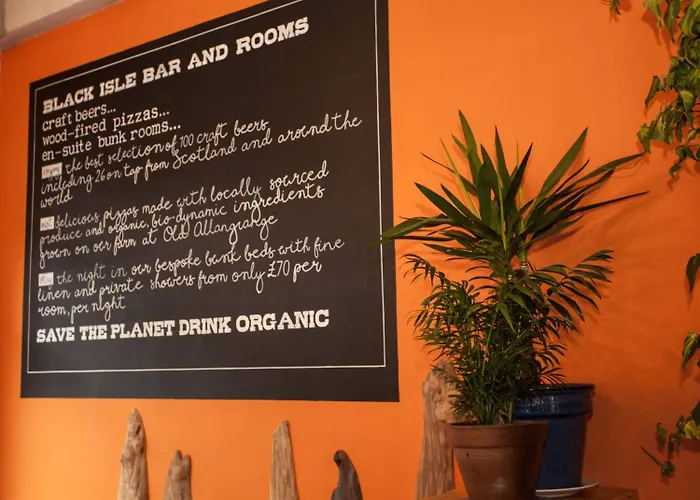 BLACK ISLE BAR AND ROOMS
craft beers...
wood-fired pizzas...
en-suite bunk rooms...
enjoy the best selection of 100 craft beers
including 26 on tap from Scotland and around the
world
eat delicious pizzas made with locally sourced
produce and organic, bio-dynamic ingredients
grown on our farm at Old Allangrange
stay the night in our bespoke bunk beds with fine
linen and private showers from only £70 per
room, per night
SAVE THE PLANET DRINK ORGANIC